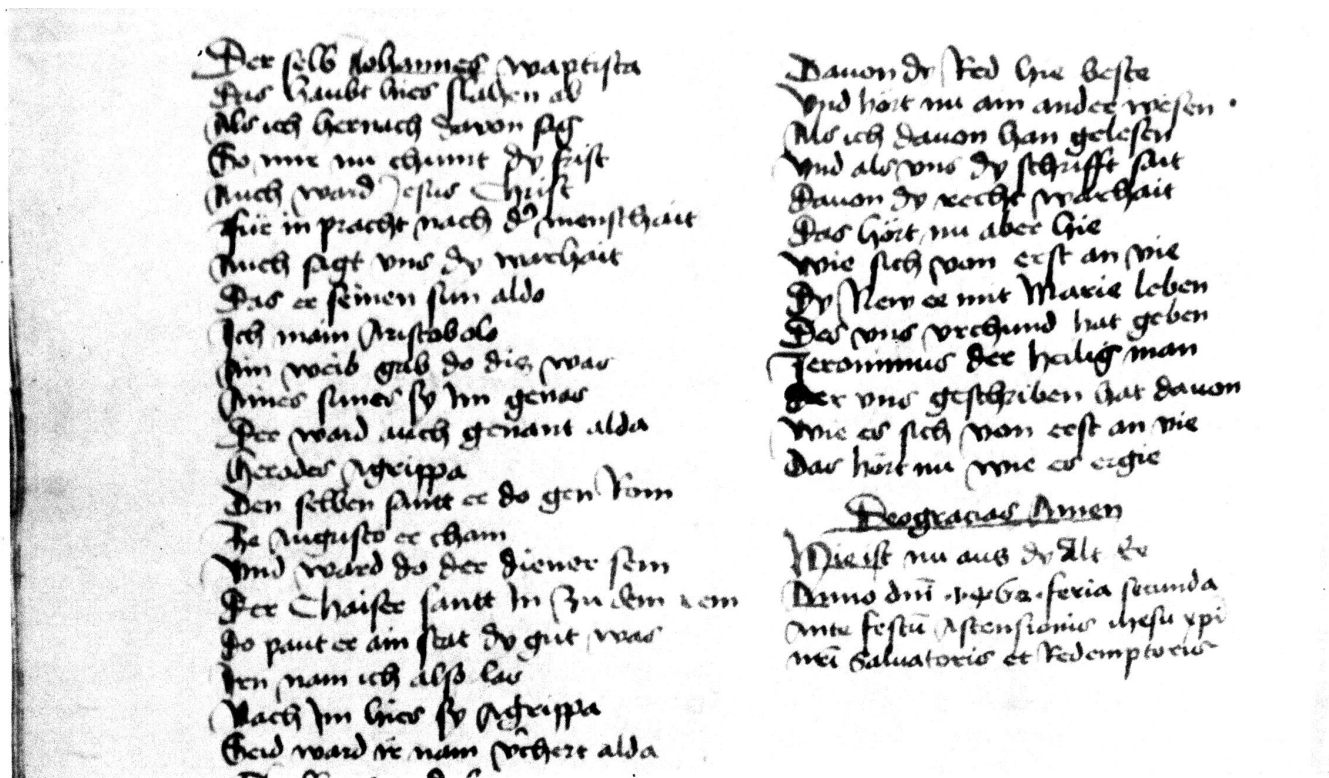 Der selb Johannes waptista
Das haubt hies slahen ab
Als ich hernach davon sag
So mir nu chumt dy frist
Auch ward Jesus Christ
Für in pracht nach der menschait
Auch sagt vns dy warhait
Das er seinen sun aldo
Ich main Aristobolo
Ain weib gab do diz was
Aines sunes sy Im genas
Der ward auch genant alda
Herodes Agrippa
Den selben santt er do gen Rom
Ze Augusto er cham
Vnd ward do der diener sein
Der Chaiser santt In Zu dem
Do paut er ain stat dy gut was
Irn nam ich also las
Nach Im hies sy Agrippa
Seid ward ir nam verchert alda
Dauon dy Red hie beste
Vnd hört nu ain ander wesen
Als ich dauon han gelesen
Vnd als vns dy schrifft sait
Dauon dy recht warhait
Das hört nu aber hie
Wie sich von erst an vie
Dy New ee mit Marie leben
Des vns vrchund hat geben
Jeronimus der heilig man
Der vns geschriben hat dauon
Wie es sich von erst an vie
Das hört nu wie es ergie
Deogracias Amen
Hie ist nu aus dy Alt Ee
Anno dni feria secunda
Ante festu Astensionis ihesu xpi
nri Saluatoris et Redemptoris